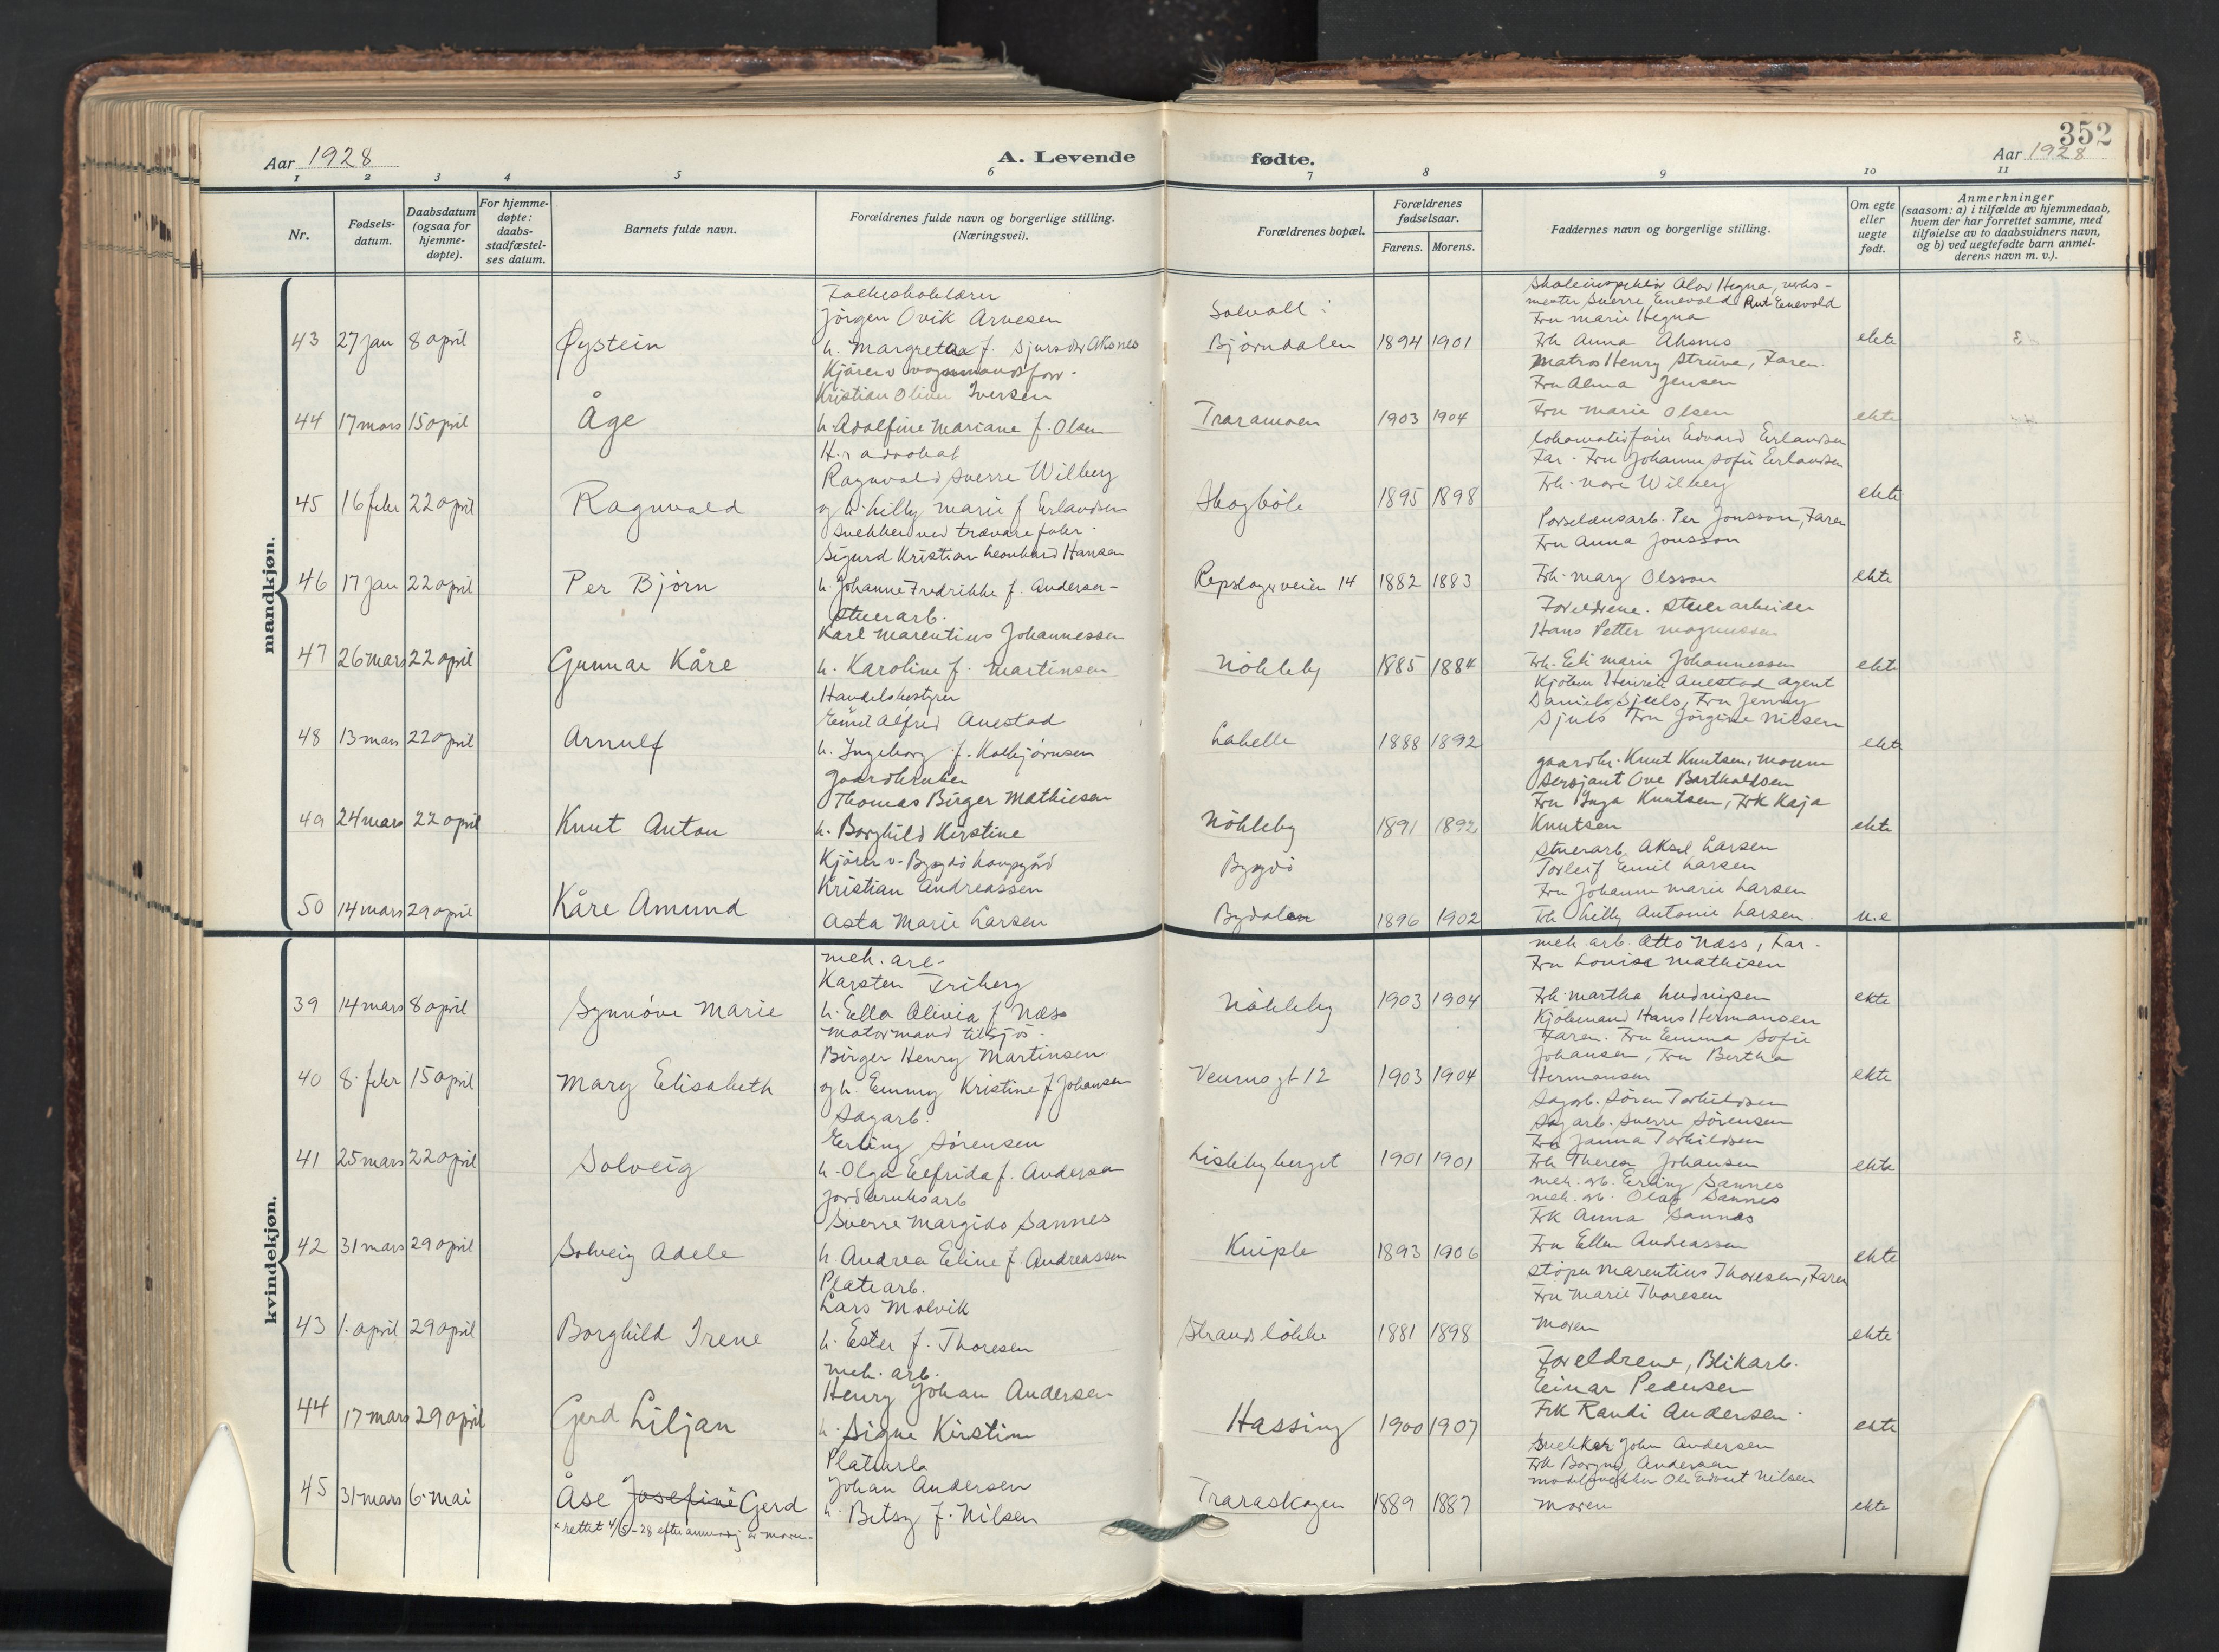 352
Aar 1928
A. Levende fødte.
Aar 1928
1 2 3 4 5 6 7 8 9 10 11
Nr.
Fødsels-
datum.
Daabsdatum
(ogsaa for
hjemme-
døpte).
For hjemme-
døpte:
daabs-
stadfæstel-
ses datum.
Barnets fulde navn.
Forældrenes fulde navn og borgerlige stilling.
(Næringsvei).
Forældrenes bopæl.
Forældrenes
fødselsaar.
Farens. Morens.
Faddernes navn og borgerlige stilling.
Om egte
eller
uegte
født.
Anmerkninger
(saasom: a) i tilfælde av hjemmedaab,
hvem der har forrettet samme, med
tilføielse av to daabsvidners navn,
og b) ved uegtefødte barn anmel-
derens navn m. v.).
mandkjøn.
43 27 jan 8 april Øystein
Folkeskolelærer
Jörgen Ovik Arvesen
h. Margretha f. Sjursdtr Aksnes
Solvoll i
Bjørndalen 1894 1901
Skoleinspektør Alov Hegna, verks-
mester Sverre Enevold Rut Enevold
Fru Marie Hegna
Frk Anna Aksnes
ekte
44 17 mars 15 april Åge
Kjører v vognmandsforr.
Kristian Oliver Iversen
h. Adolfine Mariane f. Olsen
Traramoen 1903 1904
Matros Henry Strüve, Faren.
Fru Alma Jensen
Fru Marie Olsen
ekte
45 16 febr 22 april Ragnvald
H.r advokat
Ragnvald Sverre Wilberg
og h. Lilly Marie f Erlandsen
Skogbøle 1895 1898
Lokomotivfører Edvard Erlandsen
Far. Fru Johanne Sofie Erlandsen
Frk. Wilberg
ekte
46 17 jan 22 april Per Björn
Snekker ved trævarefabr.
Sigurd Kristian Leonhard Hansen
h. Johanne Fredrikke f. Andersen
Repslagerveien 14 1882 1883
Porselænsarb. Per Jonsson, Faren
Fru Anna Jonsson
Frk. Mary Olsson
ekte
47 26 mars 22 april Gunnar Kåre
Stuerarb.
Karl Marentius Johannessen
h. Karoline f. Martinsen
Nökleby 1885 1884
Foreldrene. Stuerarbeider
Hans Petter Magnussen
Frk. Eli Marie Johannessen
ekte
48 13 mars 22 april Arnulf
Handelsbestyrer
Emil Alfred Anestad
h. Ingeborg f. Kolbjörnsen
Labelle 1888 1892
Kjöbm Henrik Anestad agent
Daniel Sjuls, Fru Jenny
Sjuls Fru Jörgine Nilsen
ekte
49 24 mars 22 april Knut Anton
Gaardbruker
Thomas Birger Mathiesen
h. Borghild Kirstine
Nökleby 1891 1892
gaardbr. Knut Knutsen, Moum
Sersjant Ove Bartholdsen
Fru Inga Knutsen, Frk Kaja
Knutsen
ekte
50 14 mars 29 april Kåre Amund
Kjörer v. Bygdö kongsgård
Kristian Andreassen
Asta Marie Larsen
Bygdö
Bydalen 1896 1902
Stuerarb. Aksel Larsen
Torleif Emil Larsen
Fru Johanne Marie Larsen
Frk Lilly Antonie Larsen
u.e
kvindekjøn.
39 14 mars 8 april Synnöve Marie
mek. arb.
Karsten Friberg
h. Ella Olivia f Næss
Nökleby 1903 1904
mek. arb. Otto Næss, Far.
Fru Louise Mathisen
Frk. Martha Ludvigsen
ekte
40 8. febr 15 april Mary Elisabeth
Motormand tilsjös.
Birger Henry Martinsen
og h. Emmy Kristine f Johansen
Venusgt 12 1903 1904
Kjöbmand Hans Hermansen
Faren. Fru Emma Sofie
Johansen, Fru Bertha
Hermansen
ekte
41 25 mars 22 april Solveig
Sagarb.
Erling Sörensen
h. Olga Elfrida f. Andersen
Lislebyberget 1901 1901
Sagarb. Sören Torkildsen
Sagarb. Sverre Sörensen
Frk Janna Torkildsen
Frk Therese Johansen
ekte
42 31 mars 29 april Solveig Adele
Jordbruksarb
Sverre Margido Sannes
h. Andrea Eline f. Andreassen
Kniple 1893 1906
mek. arb. Erling Sannes
mek. arb. Olaf Sannes
Frk Anna Sannes
Fru Ellen Andreassen
ekte
43 1. april 29 april Borghild Irene
Platearb.
Lars Molvik
h. Ester f. Thoresen
Strandslökke 1881 1898
Stöper Marentius Thoresen, Faren
Fru Marie Thoresen
Moren
ekte
44 17 mars 29 april Gerd Liljan
mek. arb.
Henry Johan Andersen
h. Signe Kirstine
Hassing 1900 1907
Foreldrene, Blikarb.
Einar Pedersen
Frk Randi Andersen
ekte
45 31 mars 6. mai Åse Josefine Gerd
× rettet 4/5-28 efter
Platearb
Johan Andersen
h. Betsy f. Nilsen
Traraskogen 1889 1887
Snekker John Andersen
Frk Borgny Andersen
Modelsnekker Ole Edvart Nilsen
Moren
ekte